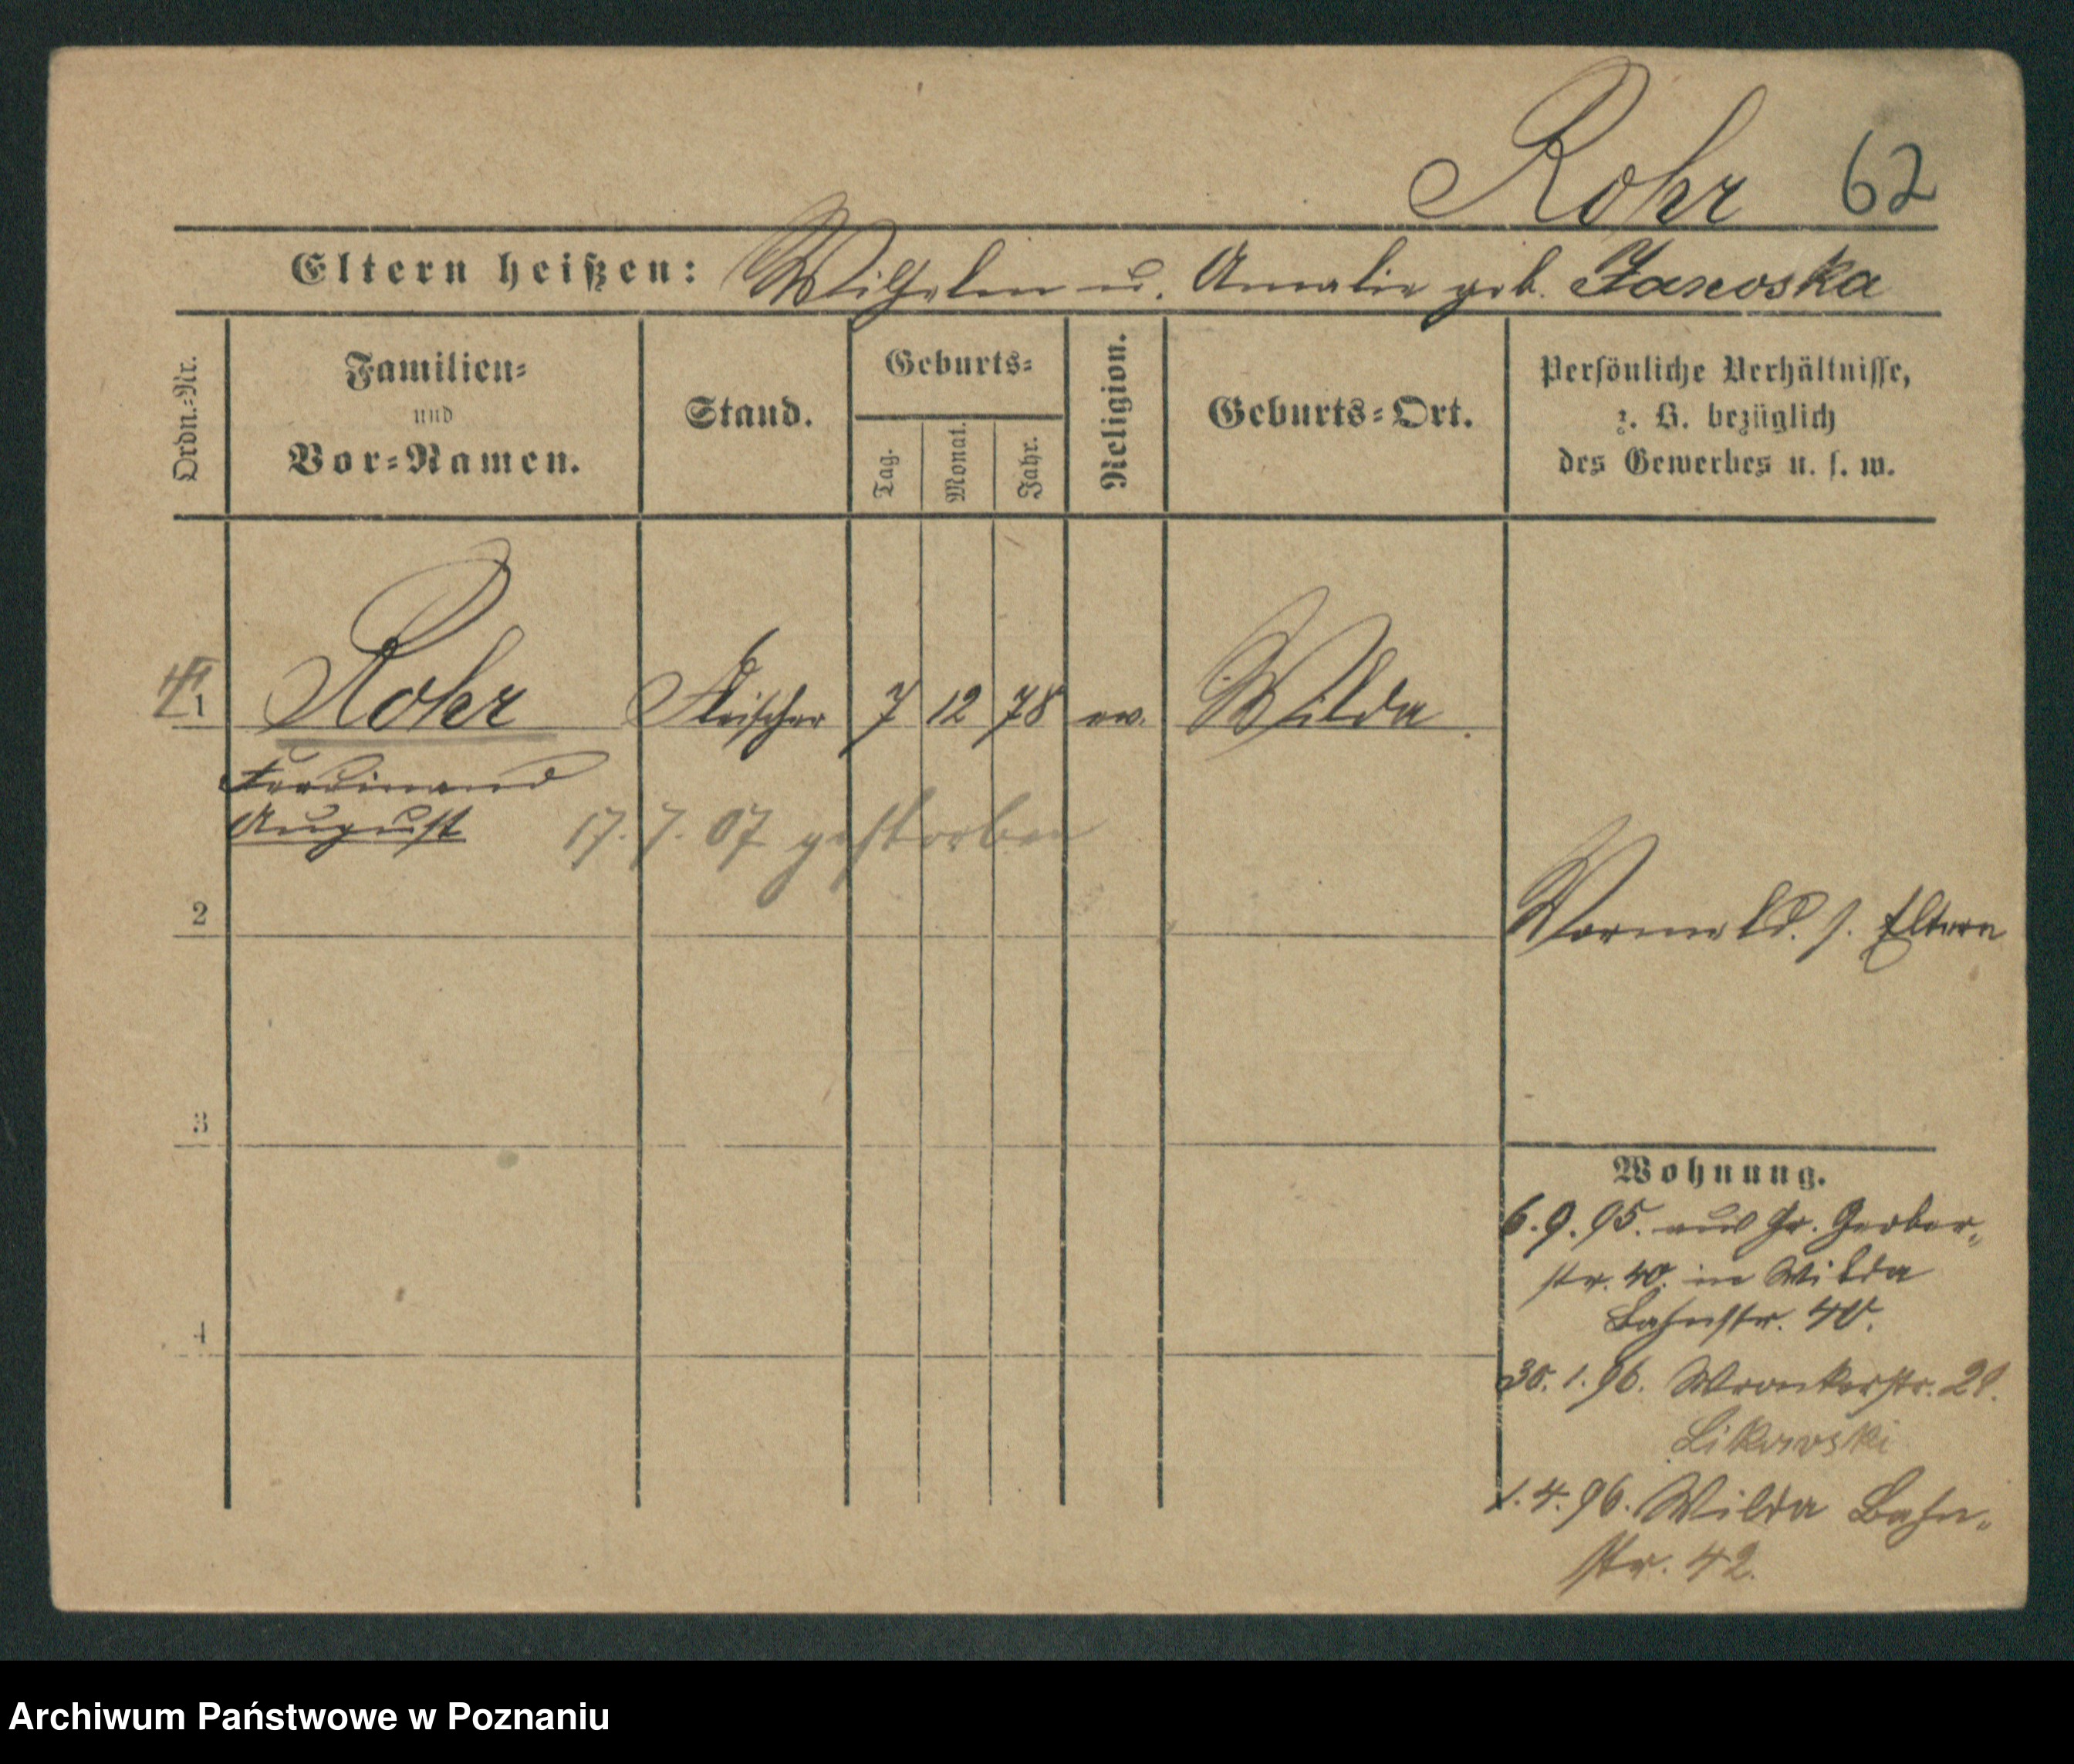 Rohr 62
Eltern heißen: Wilhelm u. Amalie geb. Janoska
Ordn.-Nr.
Familien-
und
Vor-Namen.
Stand.
Geburts-
Tag.
Monat.
Jahr.
Religion.
Geburts-Ort.
Persönliche Verhältnisse,
z. B. bezüglich
des Gewerbes u. s. w.
1 Rohr Fleischer 7 12 78 ev. Wilda
Ferdinand
August
17.7.07 gestorben
2
Vormeld. s. Eltern
3
Wohnung.
6.9.95. aus Gr. Gerber-
str. 40. in Wilda
Bahnstr. 40.
4
30.1.96. Wronkerstr. 21.
Likowski
1.4.96. Wilda Bahn-
str. 42.
Archiwum Państwowe w Poznaniu